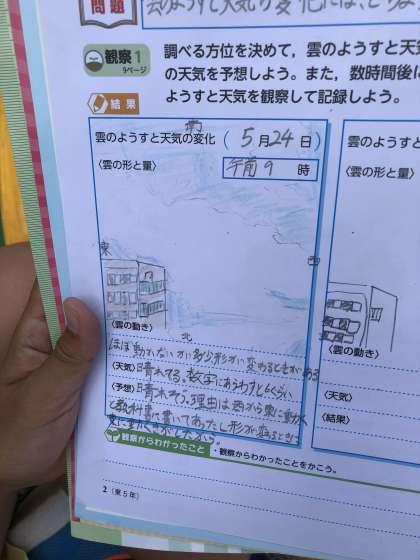 問題
雲のようすと天気の変化には、
観察1
9ページ
調べる方位を決めて，雲のようすと天
の天気を予想しよう。また，数時間後に
ようすと天気を観察して記録しよう。
結果
南
雲のようすと天気の変化 （ 5月24日）
〈雲の形と量〉 午前9時
東
西
北
〈雲の動き〉
ほぼ動かないが多少形が変わるときがある
〈天気〉晴れてる。数字にあらわすと くらい
〈予想〉晴れそう。理由は西から東に動く
と教科書に書いてあったし形が変るときに
東に
観察からわかったこと ・観察からわかったことをかこう。
2（東5年）
雲のようすと
〈雲の形と量〉
〈雲の動き〉
〈天気〉
〈結果〉